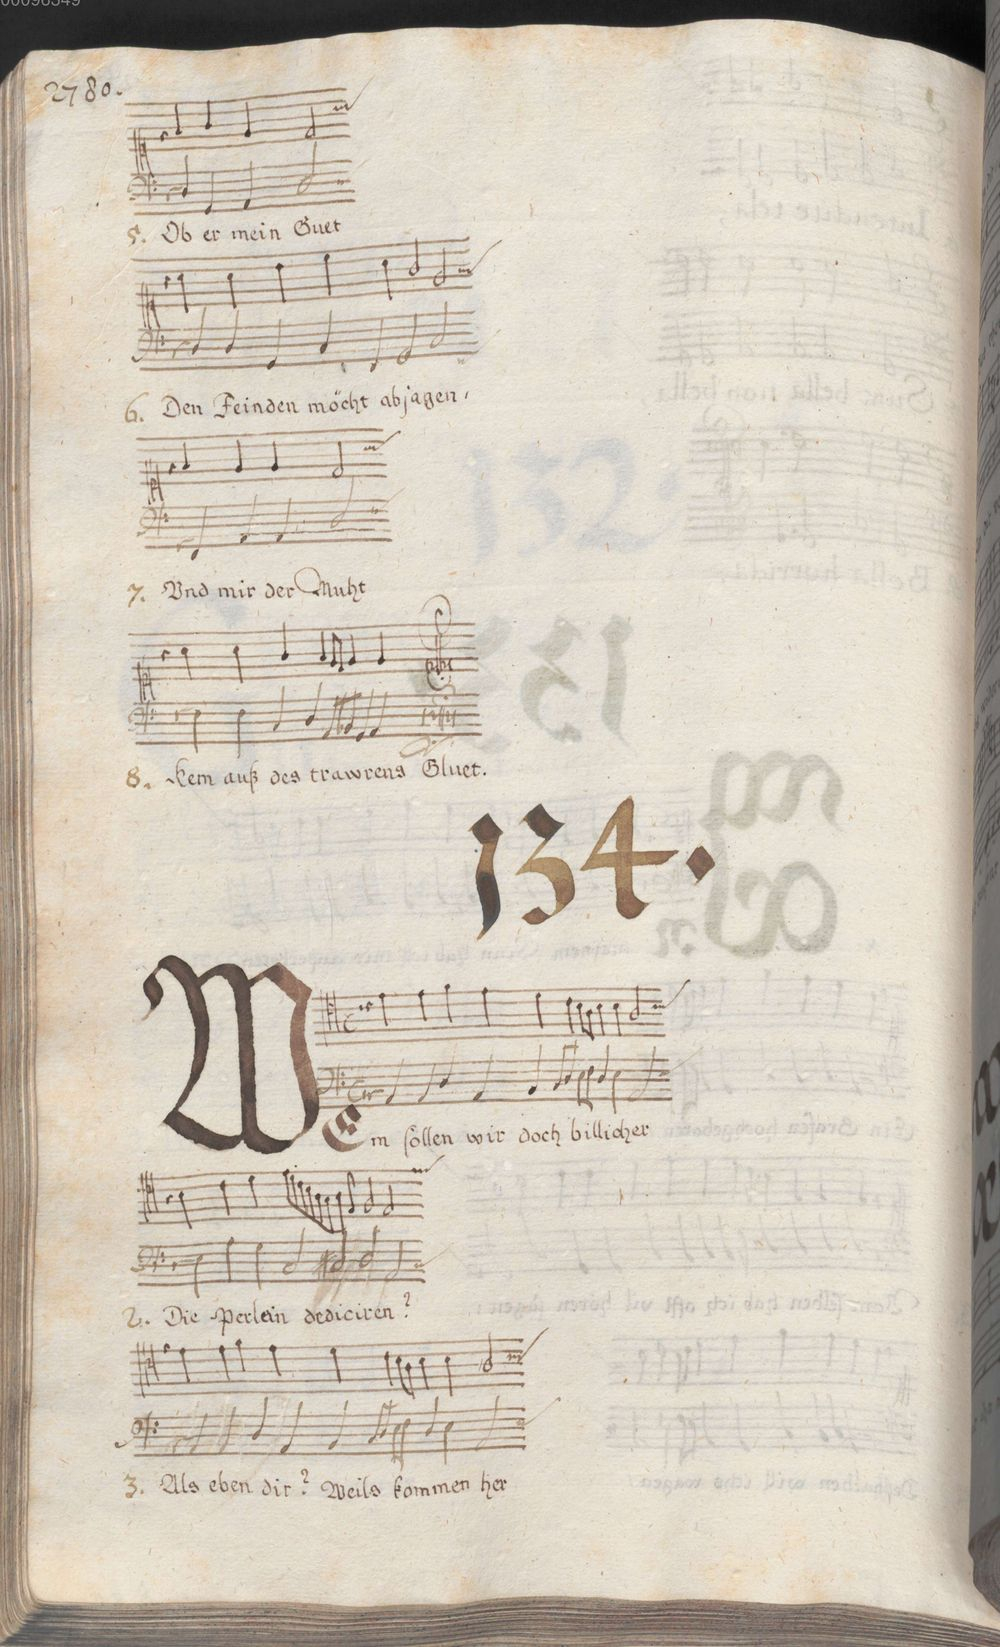 00096349
2780.
5. Ob er mein Guet
6. Den Feinden möcht abjagen,
7. Vnd mir der Muht
8. Kem auß des trawrens Gluet.
134.
WEm sollen wir doch billicher
2. Die Perlein dediciren?
3. Als eben dir? Weils kommen her